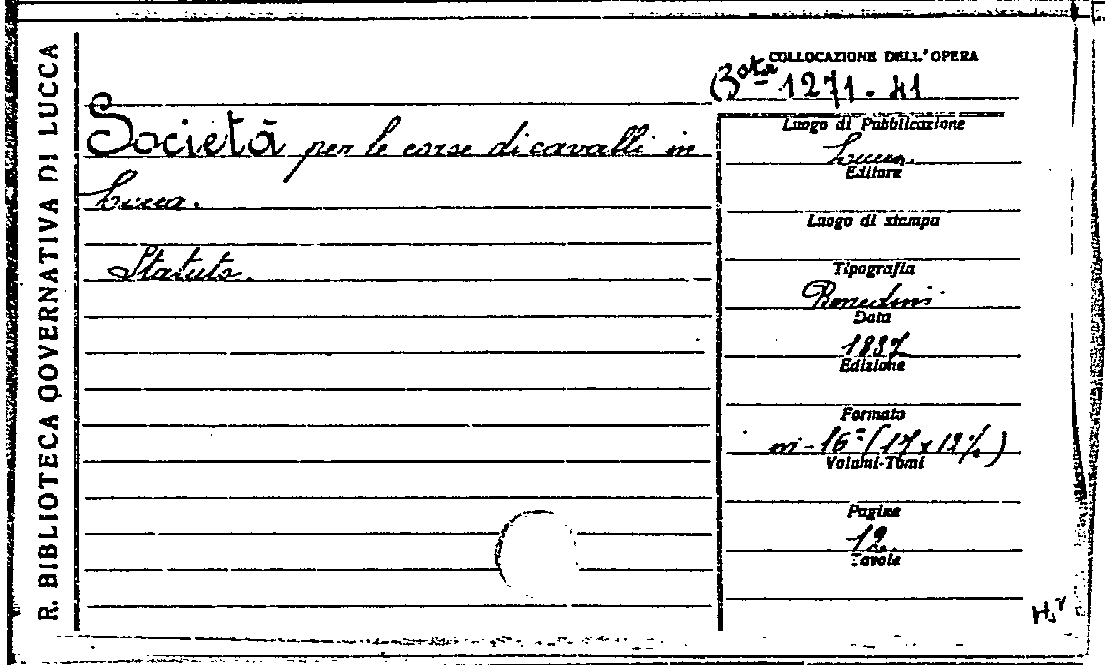 R. BIBLIOTECA GOVERNATIVA DI LUCCA
COLLOCAZIONE DELL'OPERA
Bta 1271.41
Società per le corse di cavalli in
Lucca.
Statuto.
Luogo di Pubblicazione
Lucca.
Editore
Luogo di stampa
Tipografia
Data
1887
Edizione
Formato
in-16º (17 x 12½)
Volumi-Tomi
Pagine
12.
Tavole